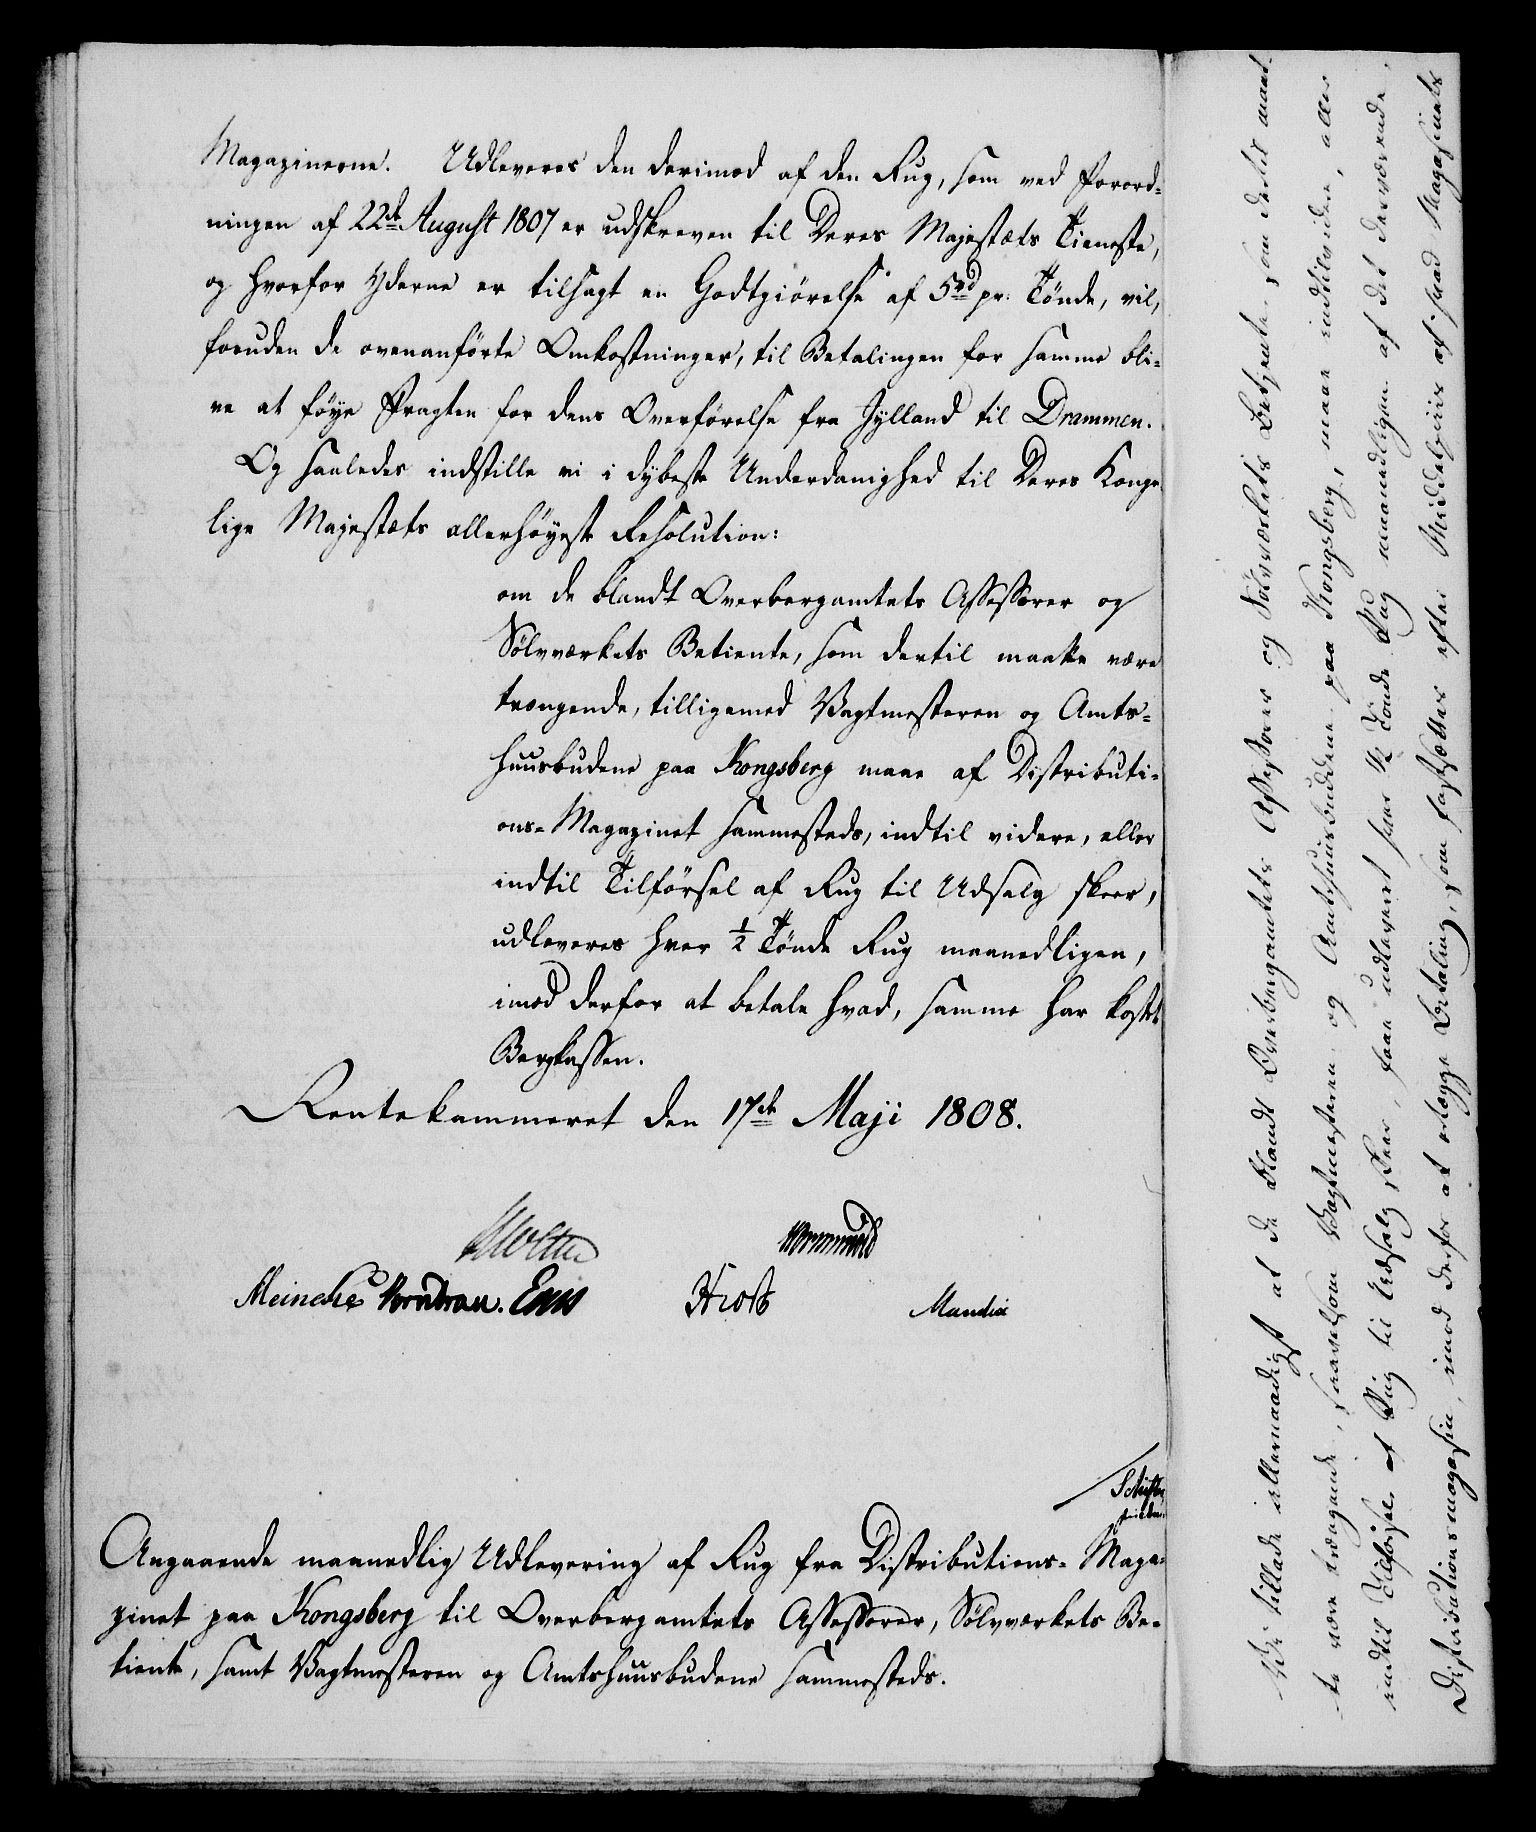 Magazinerne. Udleveres den derimod af den Rug, som ved Forord-
ningen af 22de August 1807 er udskreven til Deres Majestæts Tieneste,
og hvorfor Yderne er tilsagt en Godtgiörelse af 5rd pr. Tönde, vil,
foruden de ovenanförte Omkostninger, til Betalingen for samme bli-
ve at föye Fragten for dens Overförelse fra Jylland til Drammen.
Og saaledes indstille vi i dybeste Underdanighed til Deres Konge-
lige Majestæts allerhöyeste Resolution:
om de blandt Overbergamtets Assessorer og
Sölvværkets Betiente, som dertil maatte være
trængende, tilligemed Vagtmesteren og Amts-
huusbudene paa Kongsberg maae af Distributi-
ons-Magazinet sammesteds, indtil videre, eller
indtil Tilförsel af Rug til Udsalg skeer,
udleveres hver ½ Tönde Rug maanedligen,
imod derfor at betale hvad, samme har kostet
Bergkassen.
Rentekammeret den 17de Maji 1808.
Wormskiold
Meincke Vorndran. Hrost Mandix
Angaaende maanedlig Udlevering af Rug fra Distributions-Maga-
zinet paa Kongsberg til Overbergamtets Assessorer, Sölvværkets Be-
tiente, samt Vagtmesteren og Amtshuusbudene sammesteds.
Vi tillade allernaadigst at de blandt Overbergamtets Assessorer og Sölvværkets Betjente, som dertil maat-
te være trængende, saavelsom Vagtmesteren og Amtshuusbudene paa Kongsberg, maae indtilvidere, eller
indtil Tilförsel af Rug til Udsalg skeer, faae udleveret hver ½ Tönde Rug maanedligen af det derværende
Distributionsmagasin, imod derfor at erlægge Betaling, som fastsættes efter Middelpriis af hvad Magasinets